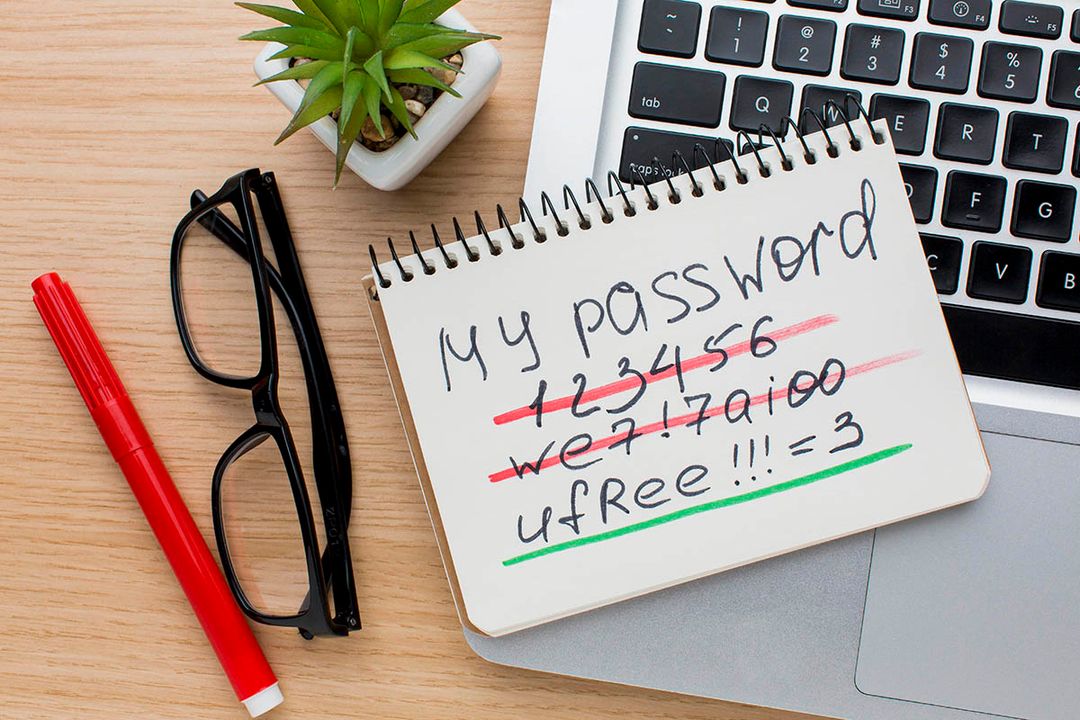 My password
123456
we7!7aio0
ufRee!!!=3
~
!
1
@
2
#
3
$
4
%
5
F3
F4
F5
tab
Q
W
E
R
T
caps lock
F
G
C
V
B